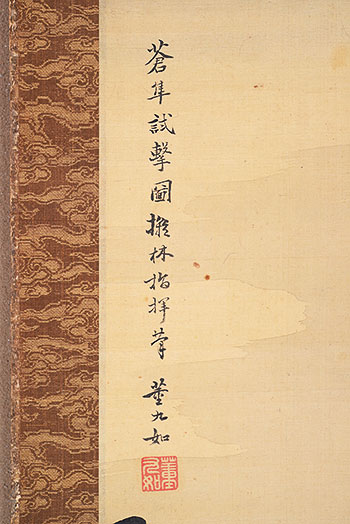 蒼隼試擊圖擬林指揮筆 董九如
董九如